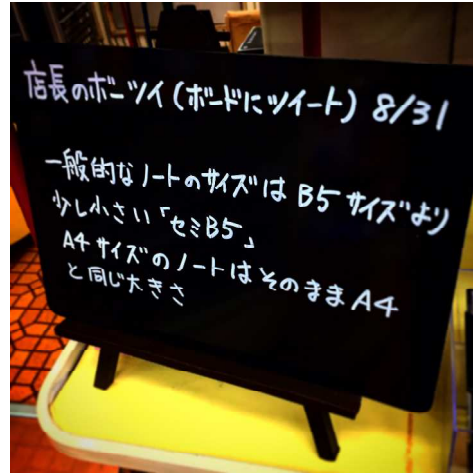 店長のボーツイ(ボードにツイート) 8/31
一般的なノートのサイズはB5サイズより
少し小さい「セミB5」
A4サイズのノートはそのままA4
と同じ大きさ